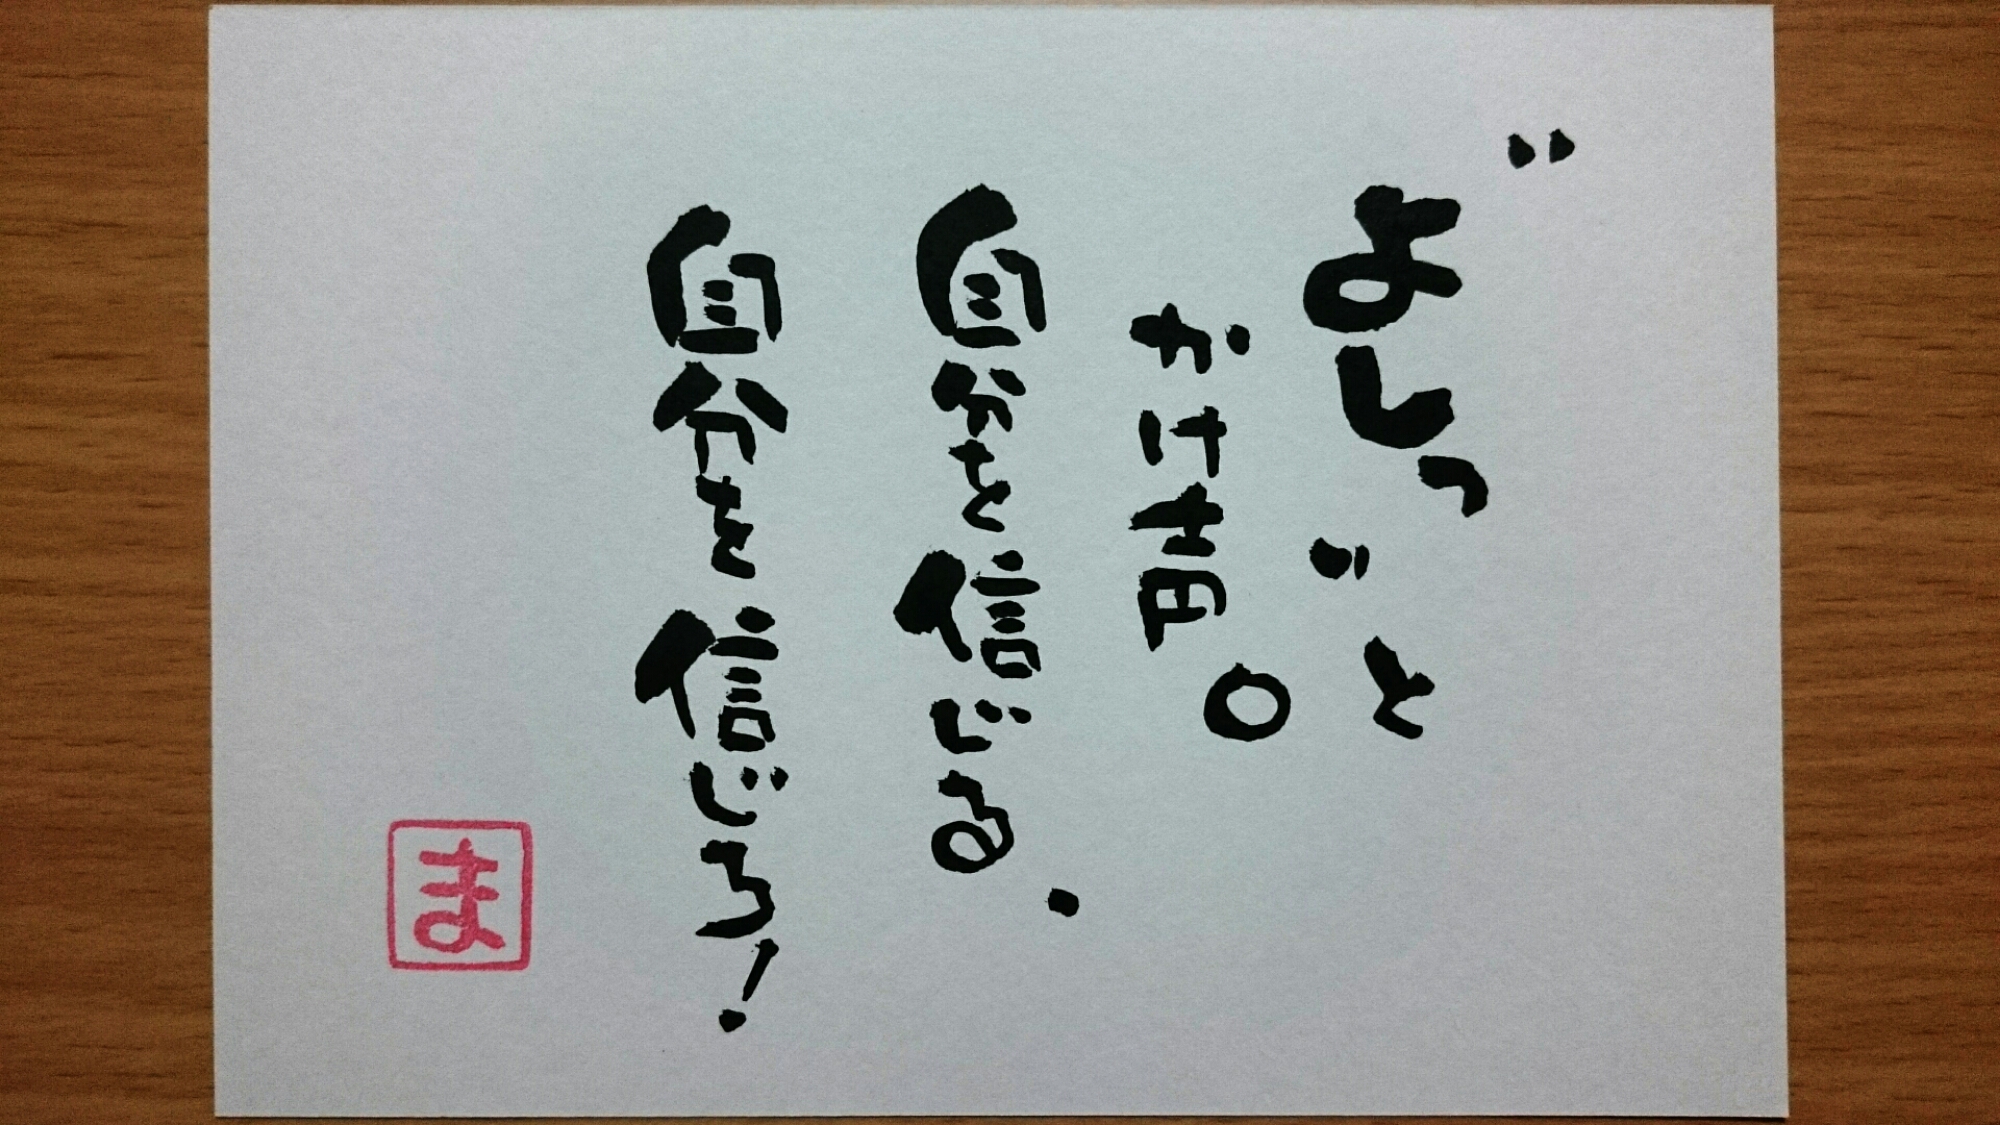 "よしっ"と
かけ声。
自分を信じる.
自分を信じろ!
ま